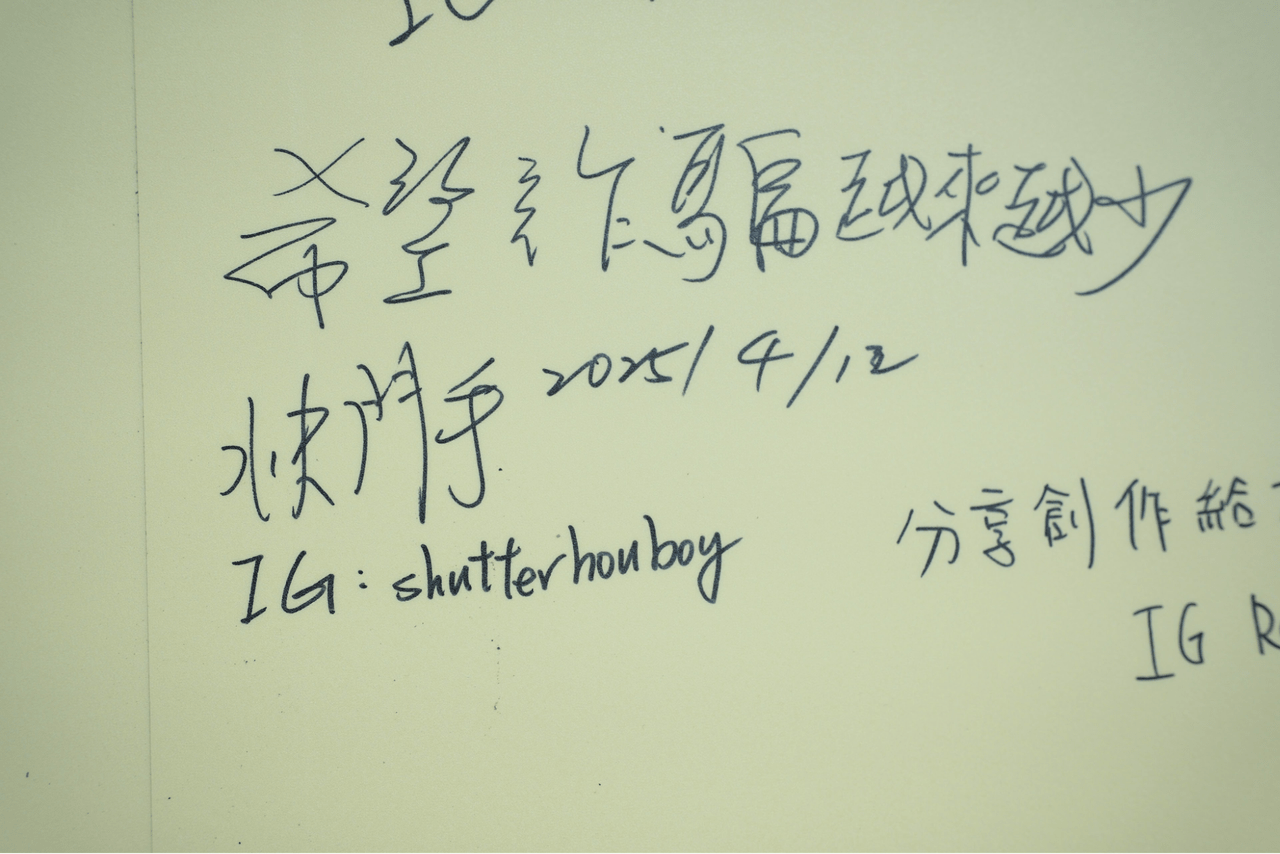 希望詐騙越來越少
快門手 2025/4/12
IG: shutterhouboy
分享創作給
IG R